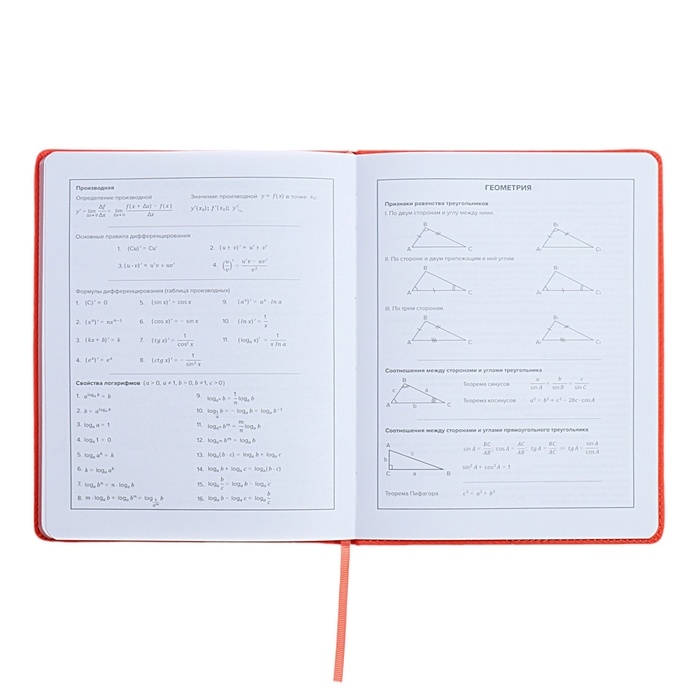 Производная
Определение производной
y' = lim Δx→0 Δf/Δx = lim Δx→0 (f(x + Δx) − f(x))/Δx
Значение производной y = f(x) в точке x₀
y'(x₀); f'(x₀); y'|x₀
Основные правила дифференцирования
1. (Cu)' = Cu'
2. (u ± v)' = u' ± v'
3. (u·v)' = u'v + uv'
4. (u/v)' = (u'v − uv')/v²
Формулы дифференцирования (таблица производных)
1. (C)' = 0
2. (xⁿ)' = nxⁿ⁻¹
3. (kx + b)' = k
4. (eˣ)' = eˣ
5. (sin x)' = cos x
6. (cos x)' = − sin x
7. (tg x)' = 1/cos² x
8. (ctg x)' = − 1/sin² x
9. (aˣ)' = aˣ · ln a
10. (ln x)' = 1/x
11. (logₐ x)' = 1/(x ln a)
Свойства логарифмов (a > 0, a ≠ 1, b > 0, b ≠ 1, c > 0)
3. logₐ a = 1
4. logₐ 1 = 0
7. logₐ bⁿ = n · logₐ b
13. logₐ(b · c) = logₐ b + logₐ c
14. logₐ b + logₐ c = logₐ(b · c)
15. logₐ b/c = logₐ b − logₐ c
16. logₐ b − logₐ c = logₐ b/c
ГЕОМЕТРИЯ
Признаки равенства треугольников
I. По двум сторонам и углу между ними.
B B₁
A C A₁ C₁
II. По стороне и двум прилежащим к ней углам.
B B₁
A C A₁ C₁
III. По трем сторонам.
B B₁
A C A₁ C₁
Соотношения между сторонами и углами треугольника
B
c a
A b C
Теорема синусов a/sin A = b/sin B = c/sin C
Теорема косинусов a² = b² + c² − 2bc · cos A
Соотношения между сторонами и углами прямоугольного треугольника
A
b c
C a B
sin A = BC/AB; cos A = AC/AB; tg A = BC/AC ⇒ tg A = sin A/cos A
sin² A + cos² A = 1
Теорема Пифагора c² = a² + b²